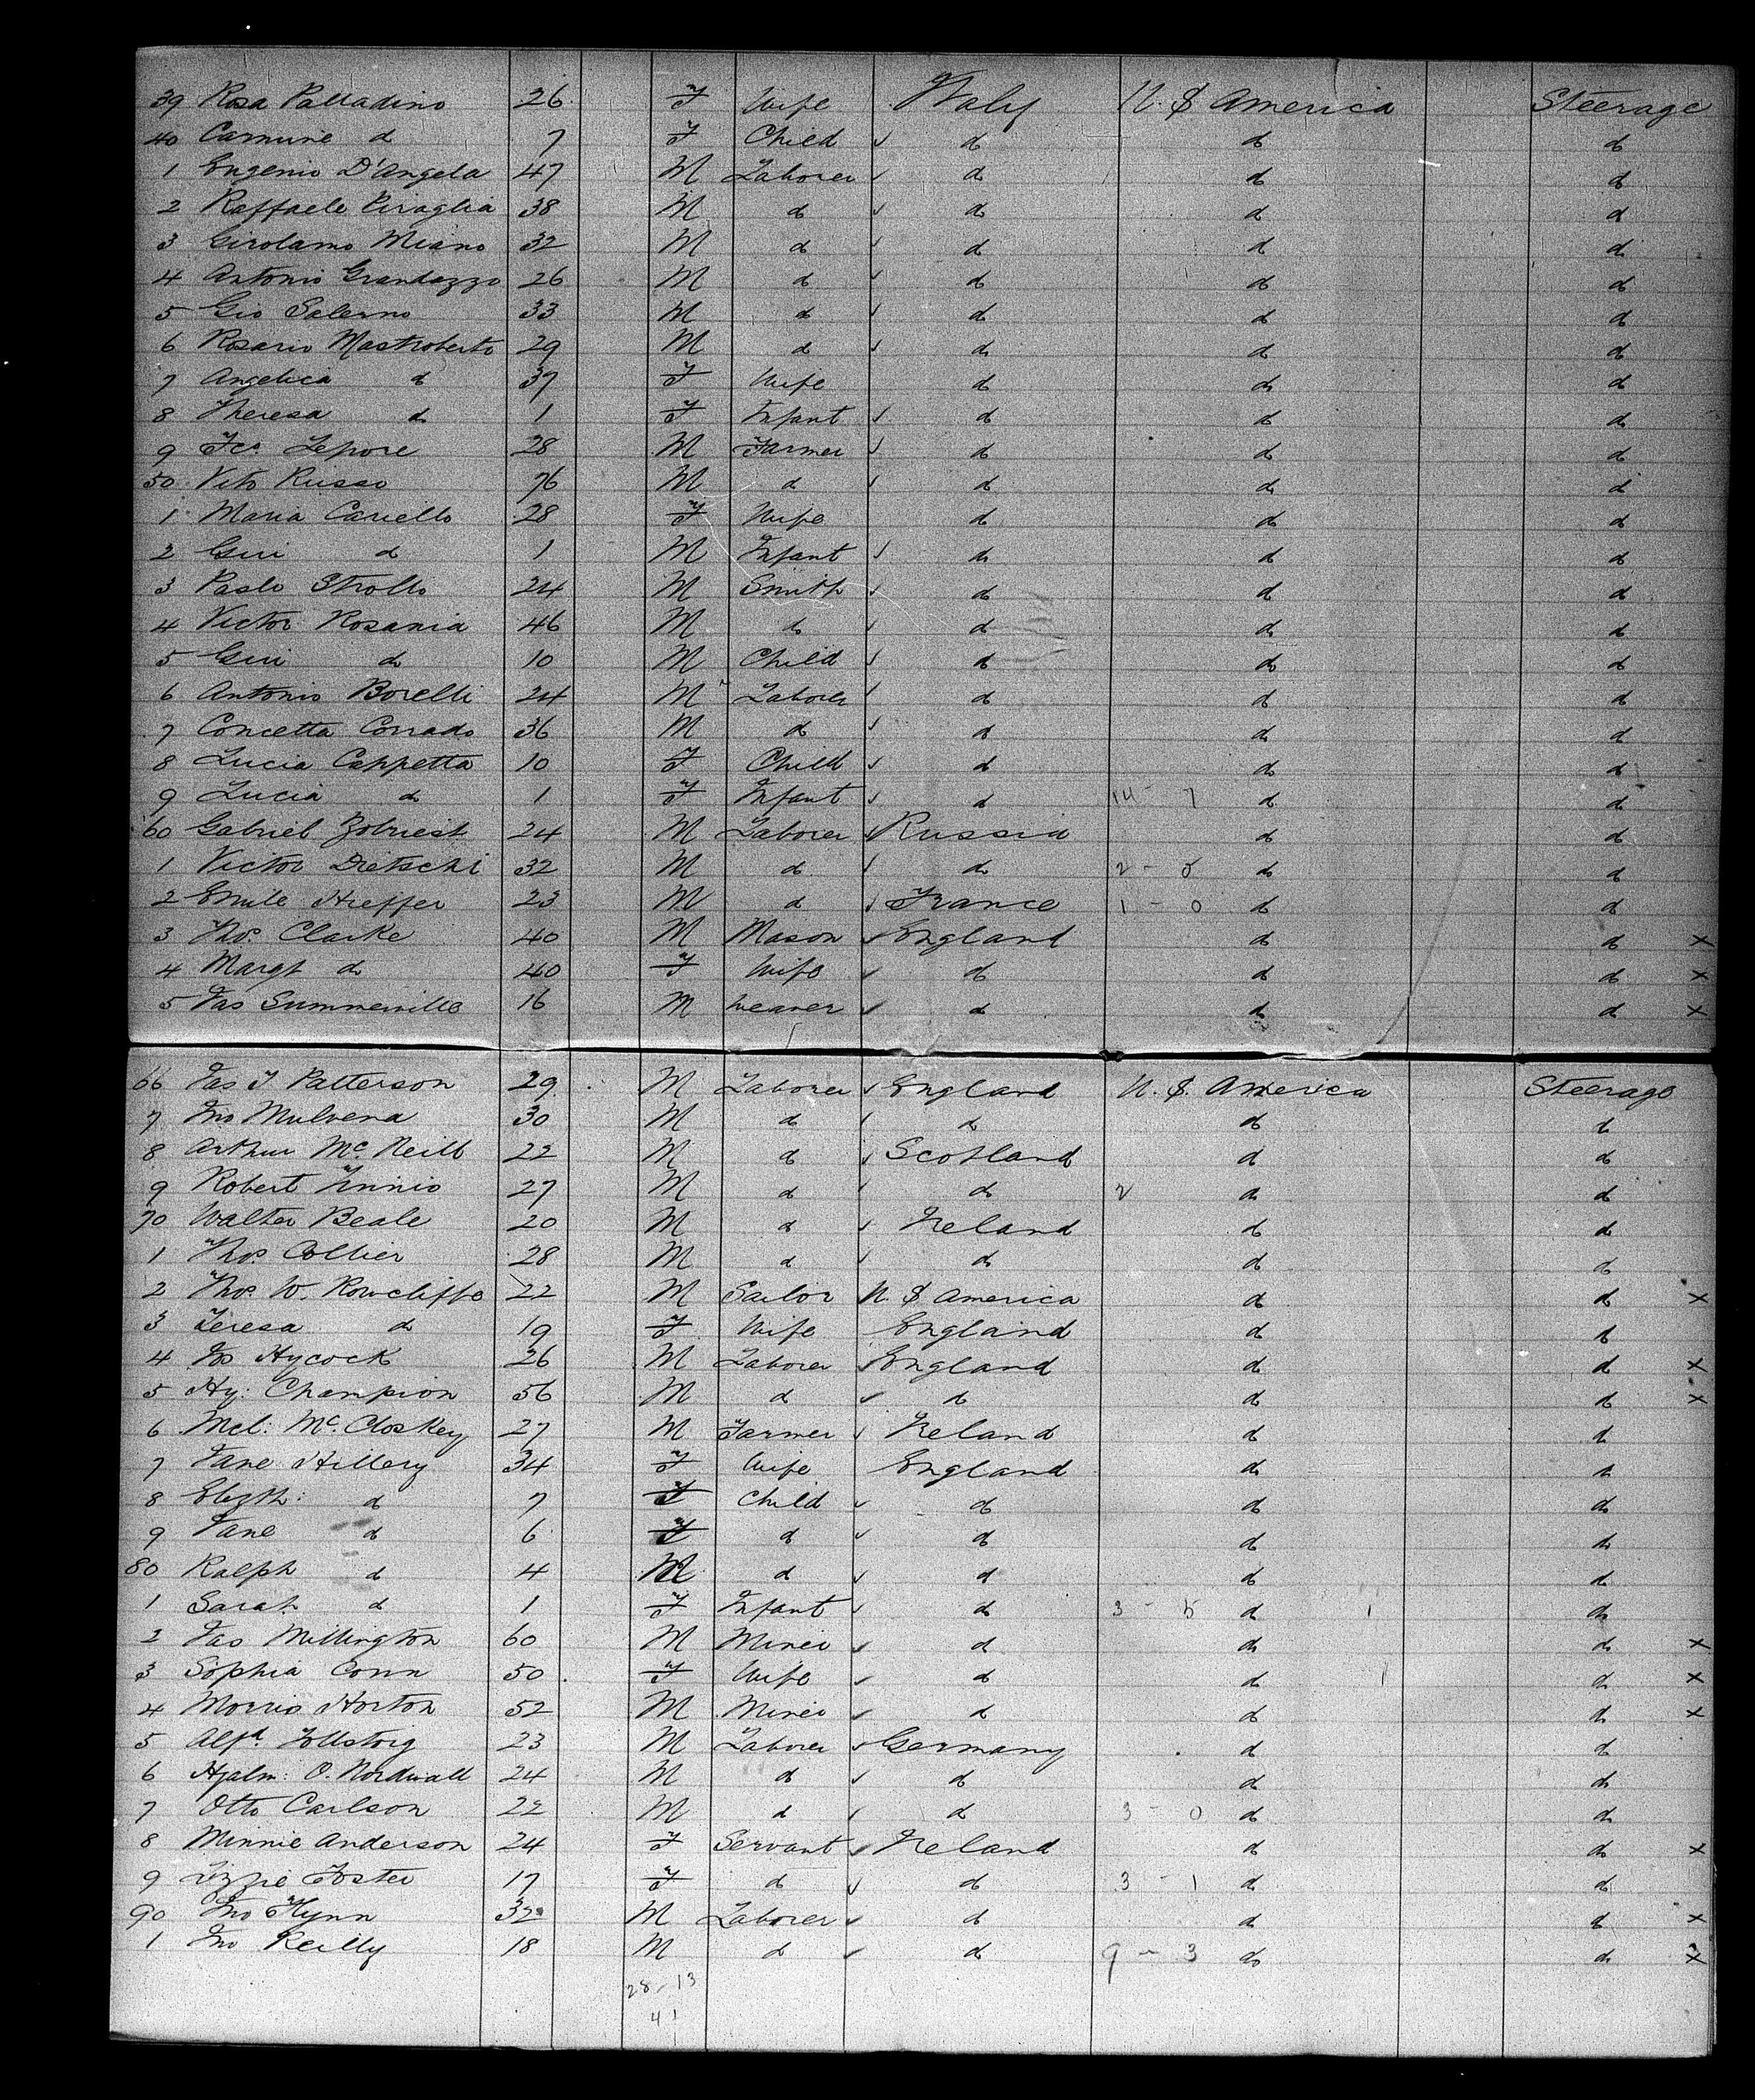 39 Rosa Palladino 26 F Wife Italy U. S America Steerage
40 Carmine d 7 F Child d d d
1 Eugenio D'Angela 47 M Laborer d d d
2 Raffaele Piraglia 38 M d d d d
3 Girolamo Miano 32 M d d d d
4 Antonio Grandazzo 26 M d d d d
5 Gio Salerno 33 M d d d d
6 Rosario Mastroberto 29 M d d d d
7 Angelica d 37 F Wife d d d
8 Theresa d 1 F Infant d d d
9 Fco Lepore 28 M Farmer d d d
50 Vito Russo 76 M d d d d
1 Maria Cariello 28 F Wife d d d
2 Giu d 1 M Infant d d d
3 Paolo Strollo 24 M Smith d d d
4 Victor Rosania 46 M d d d d
5 Giu d 10 M Child d d d
6 Antonio Borelli 24 M Laborer d d d
7 Concetta Corrado 36 M d d d d
8 Lucia Cappetta 10 F Child d d d
9 Lucia d 1 F Infant d 14 - 7 d d
60 Gabriel Zobrist 24 M Laborer Russia d d
1 Victor Dietschi 32 M d d 2 - 0 d d
2 Emile Hieffer 23 M d France 1 - 0 d d
3 Thos. Clarke 40 M Mason England d d x
4 Margt d 40 F Wife d d d x
5 Jas Summerville 16 M Weaver d d d x
66 Jas J. Patterson 29 M Laborer England U. S. America Steerage
7 Jno Mulvena 30 M d d d d
8 Arthur Mc Neill 22 M d Scotland d d
9 Robert Innis 27 M d d 2 d d
70 Walter Beale 20 M d Ireland d d
1 Thos. Collier 28 M d d d d
2 Thos. W. Rowcliffe 22 M Sailor U. S America d d x
3 Teresa d 19 F Wife England d d
4 Jno Hycock 26 M Laborer England d d x
5 Hy: Champion 56 M d d d d x
6 Mcl: Mc Closkey 27 M Farmer Ireland d d
7 Jane Hillery 34 F Wife England d d
8 Elizth: d 7 F Child d d d
9 Jane d 6 F d d d d
80 Ralph d 4 M d d d d
1 Sarah d 1 F Infant d 3 - 5 d d
2 Jas Millington 60 M Miner d d d x
3 Sophia Conn 50 F Wife d d d x
4 Morris Horton 52 M Miner d d d x
5 Alfd. 23 M Laborer Germany d d
6 Hjalm: O. Nordwall 24 M d d d d
7 Otto Carlson 22 M d d 3 - 0 d d
8 Minnie Anderson 24 F Servant Ireland d d x
9 Lizzie Foster 17 F d d 3 - 1 d d
90 Jno Flynn 32 M Laborer d d d x
1 Jno Reilly 18 M d d 9 - 3 d d x
28 - 13
41